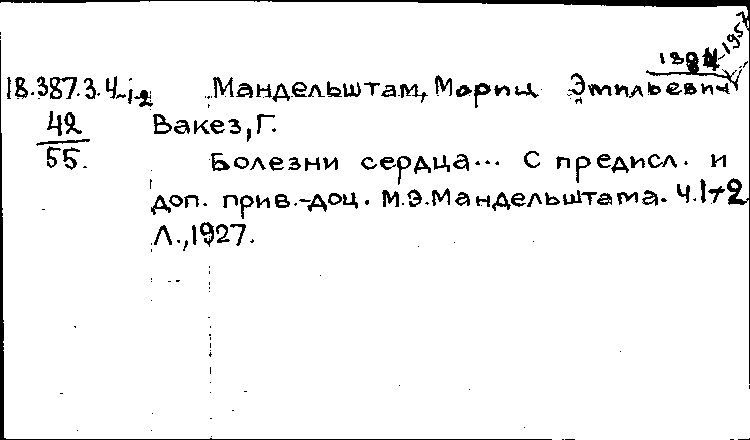 1884-1957
18.387.3.4-1-2 Мандельштам, Мориц Эмильевич
42 Вакез, Г.
55. Болезни сердца... С предисл. и
доп. прив.-доц. М.Э.Мандельштама. Ч.1+2
Л.,1927.